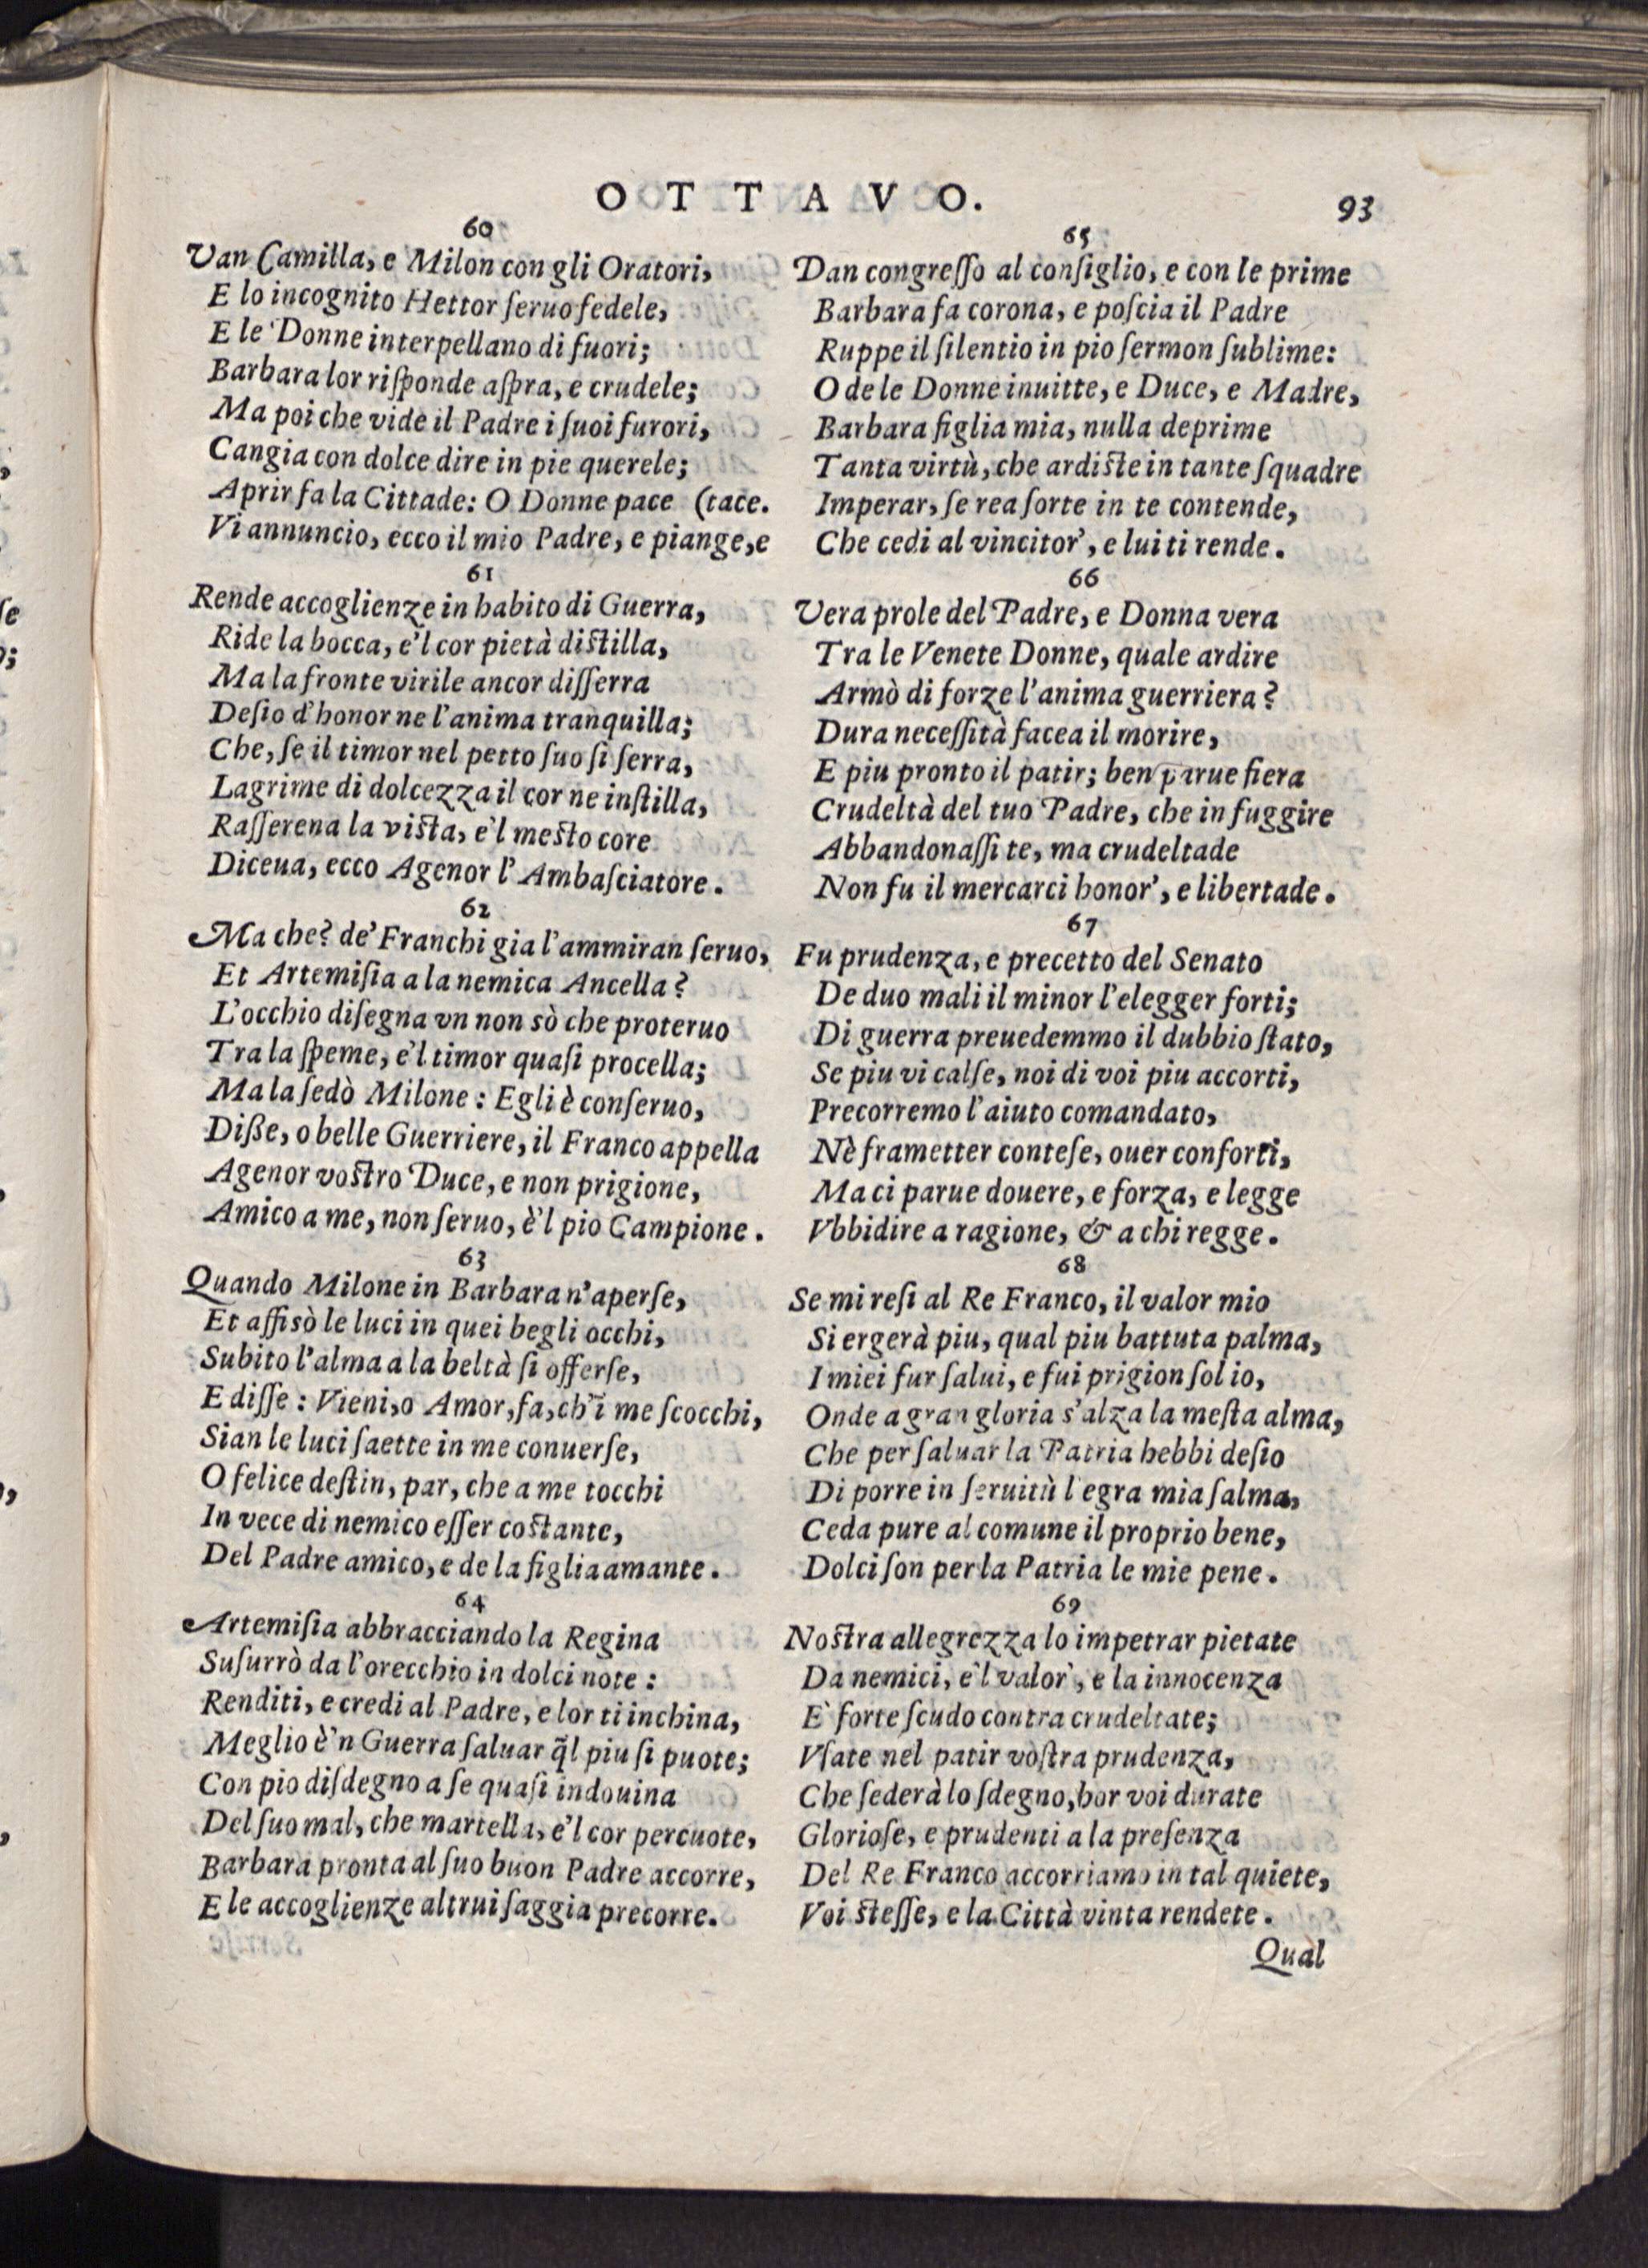 OTTAVO.
93
60
Van Camilla, e Milon con gli Oratori,
E lo incognito Hettor ſeruo fedele,
E le Donne interpellano di fuori;
Barbara lor riſponde aſpra, e crudele;
Ma poi che vide il Padre i ſuoi furori,
Cangia con dolce dire in pie querele;
Aprir fa la Cittade: O Donne pace (tace.
Vi annuncio, ecco il mio Padre, e piange, e
61
Rende accoglienze in habito di Guerra,
Ride la bocca, e'l cor pietà diſtilla,
Ma la fronte virile ancor diſſerra
Deſio d'honor ne l'anima tranquilla;
Che, ſe il timor nel petto ſuo ſi ſerra,
Lagrime di dolcezza il cor ne inſtilla,
Raſſerena la viſta, e'l meſto core
Diceua, ecco Agenor l'Ambaſciatore.
62
Ma che? de' Franchi gia l'ammiran ſeruo,
Et Artemiſia a la nemica Ancella?
L'occhio diſegna vn non sò che proteruo
Tra la ſpeme, e'l timor quaſi procella;
Ma la ſedò Milone: Egli è conſeruo,
Diße, o belle Guerriere, il Franco appella
Agenor voſtro Duce, e non prigione,
Amico a me, non ſeruo, è'l pio Campione.
63
Quando Milone in Barbara n'aperſe,
Et affisò le luci in quei begli occhi,
Subito l'alma a la beltà ſi offerſe,
E diſſe: Vieni, o Amor, fa, ch'ī me ſcocchi,
Sian le luci ſaette in me conuerſe,
O felice deſtin, par, che a me tocchi
In vece di nemico eſſer coſtante,
Del Padre amico, e de la figlia amante.
64
Artemiſia abbracciando la Regina
Suſurrò da l'orecchio in dolci note:
Renditi, e credi al Padre, e lor ti inchina,
Meglio è'n Guerra ſaluar q̃l piu ſi puote;
Con pio diſdegno a ſe quaſi indouina
Del ſuo mal, che martella, e'l cor percuote,
Barbara pronta al ſuo buon Padre accorre,
E le accoglienze altrui ſaggia precorre.
65
Dan congreſſo al conſiglio, e con le prime
Barbara fa corona, e poſcia il Padre
Ruppe il ſilentio in pio ſermon ſublime:
O de le Donne inuitte, e Duce, e Madre,
Barbara figlia mia, nulla deprime
Tanta virtù, che ardiſte in tante ſquadre
Imperar, ſe rea ſorte in te contende,
Che cedi al vincitor', e lui ti rende.
66
Vera prole del Padre, e Donna vera
Tra le Venete Donne, quale ardire
Armò di forze l'anima guerriera?
Dura neceſſità facea il morire,
E piu pronto il patir; ben parue fiera
Crudeltà del tuo Padre, che in fuggire
Abbandonaſſi te, ma crudeltade
Non fu il mercarci honor', e libertade.
67
Fu prudenza, e precetto del Senato
De duo mali il minor l'elegger forti;
Di guerra preuedemmo il dubbio ſtato,
Se piu vi calſe, noi di voi piu accorti,
Precorremo l'aiuto comandato,
Nè frametter conteſe, ouer conforti,
Ma ci parue douere, e forza, e legge
Vbbidire a ragione, & a chi regge.
68
Se mi reſi al Re Franco, il valor mio
Si ergerà piu, qual piu battuta palma,
I miei fur ſalui, e fui prigion ſol io,
Onde a gran gloria s'alza la meſta alma,
Che per ſaluar la Patria hebbi deſio
Di porre in ſeruitù l'egra mia ſalma,
Ceda pure al comune il proprio bene,
Dolci ſon per la Patria le mie pene.
69
Noſtra allegrezza lo impetrar pietate
Da nemici, e'l valor', e la innocenza
E' forte ſcudo contra crudeltate;
Vſate nel patir voſtra prudenza,
Che ſederà lo ſdegno, hor voi durate
Glorioſe, e prudenti a la preſenza
Del Re Franco accorriamo in tal quiete,
Voi ſteſſe, e la Città vinta rendete.
Qual